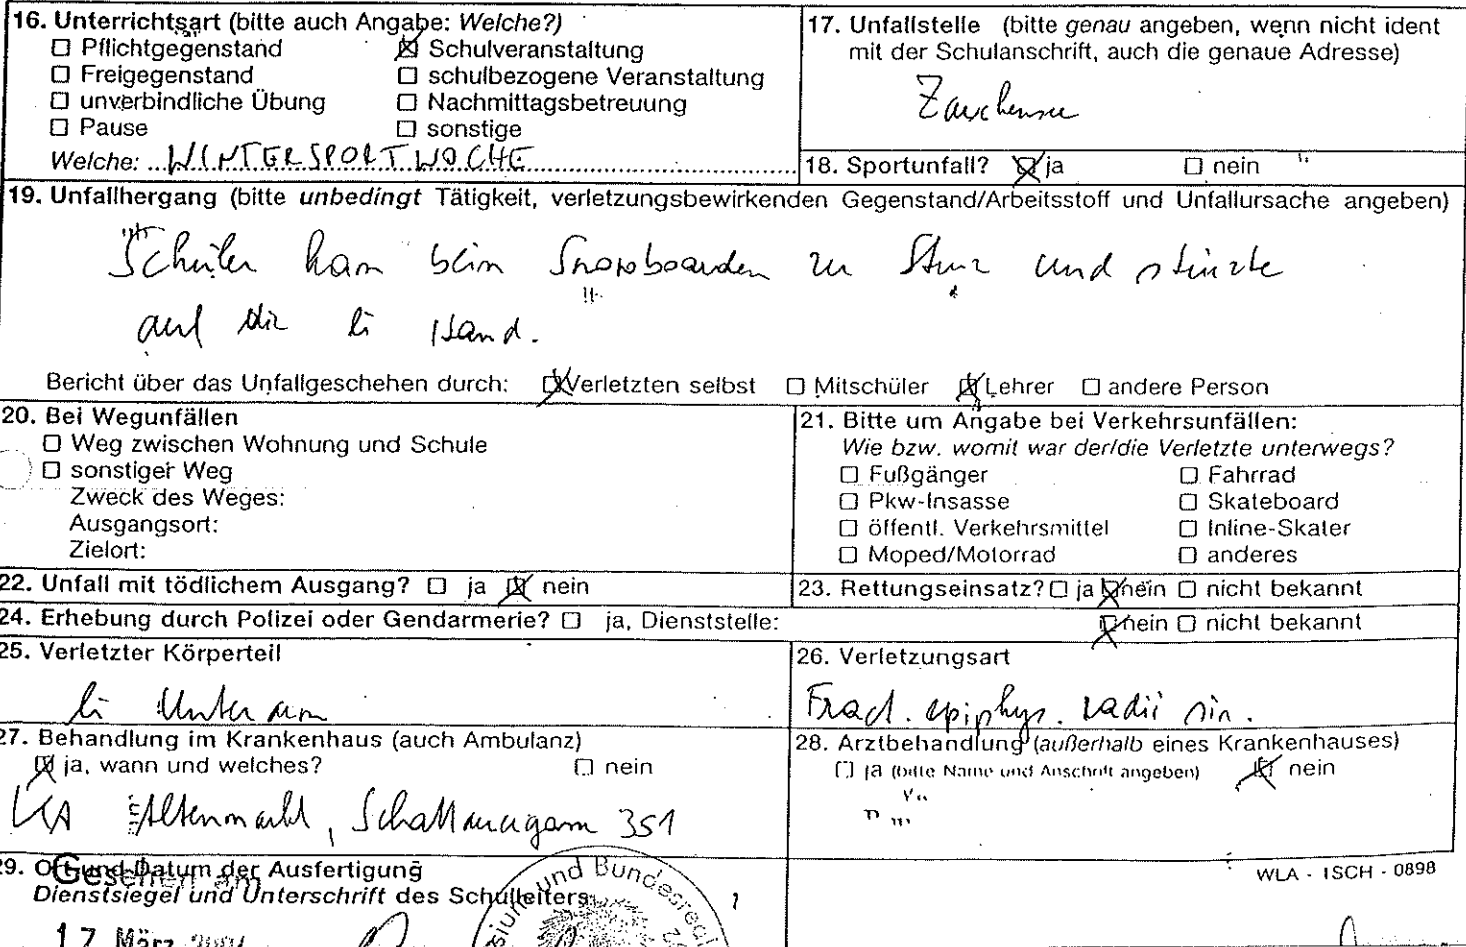 16. Unterrichtsart (bitte auch Angabe: Welche?)
☐ Pflichtgegenstand ☒ Schulveranstaltung
☐ Freigegenstand ☐ schulbezogene Veranstaltung
☐ unverbindliche Übung ☐ Nachmittagsbetreuung
☐ Pause ☐ sonstige
Welche: WINTERSPORTWOCHE
17. Unfallstelle (bitte genau angeben, wenn nicht ident
mit der Schulanschrift, auch die genaue Adresse)
Zauchensee
18. Sportunfall? ☒ ja ☐ nein
19. Unfallhergang (bitte unbedingt Tätigkeit, verletzungsbewirkenden Gegenstand/Arbeitsstoff und Unfallursache angeben)
Schüler kam beim Snowboarden zu Sturz und stürzte
auf die li Hand.
Bericht über das Unfallgeschehen durch: ☒ Verletzten selbst ☐ Mitschüler ☒ Lehrer ☐ andere Person
20. Bei Wegunfällen
☐ Weg zwischen Wohnung und Schule
☐ sonstiger Weg
Zweck des Weges:
Ausgangsort:
Zielort:
21. Bitte um Angabe bei Verkehrsunfällen:
Wie bzw. womit war der/die Verletzte unterwegs?
☐ Fußgänger ☐ Fahrrad
☐ Pkw-Insasse ☐ Skateboard
☐ öffentl. Verkehrsmittel ☐ Inline-Skater
☐ Moped/Motorrad ☐ anderes
22. Unfall mit tödlichem Ausgang? ☐ ja ☒ nein
23. Rettungseinsatz? ☐ ja ☒ nein ☐ nicht bekannt
24. Erhebung durch Polizei oder Gendarmerie? ☐ ja, Dienststelle: ☒ nein ☐ nicht bekannt
25. Verletzter Körperteil
li Unterarm
26. Verletzungsart
Fract. epiphys. radii sin.
27. Behandlung im Krankenhaus (auch Ambulanz)
☒ ja, wann und welches? ☐ nein
Altenmarkt, 351
28. Arztbehandlung (außerhalb eines Krankenhauses)
☐ ja (bitte Name und Anschrift angeben) ☒ nein
29. Ort und Datum der Ausfertigung
Gesehen am
Dienstsiegel und Unterschrift des Schulleiters:
17. März
und Bundesreal
WLA - 1SCH - 0898